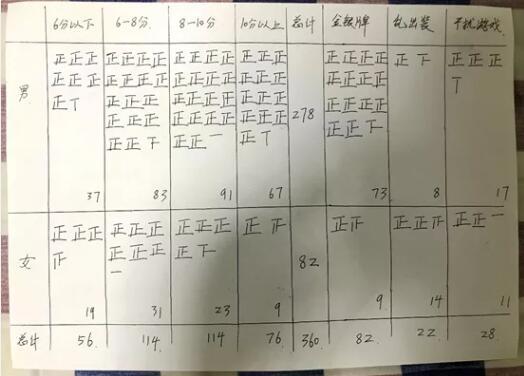 6分以下 6-8分 8-10分 10分以上 总计 金银牌 乱出装 干扰游戏
男
正正正 正正正正 正正正正 正正正 正正正正 正下 正正正
正正正正 正正正正 正正正正 正正正 正正正正 丅
正丅 正正正 正正正正 正正正 正正正正
正正正 正正正正 正正正 正正下
正正下 正正一 正丅
278
37 83 91 67 73 8 17
女
正正正 正正正 正正正 正 正 正正 正
正正正 正下 一
一
82
19 31 23 9 9 14 11
总计 56. 114. 114 76. 360. 82. 22. 28.